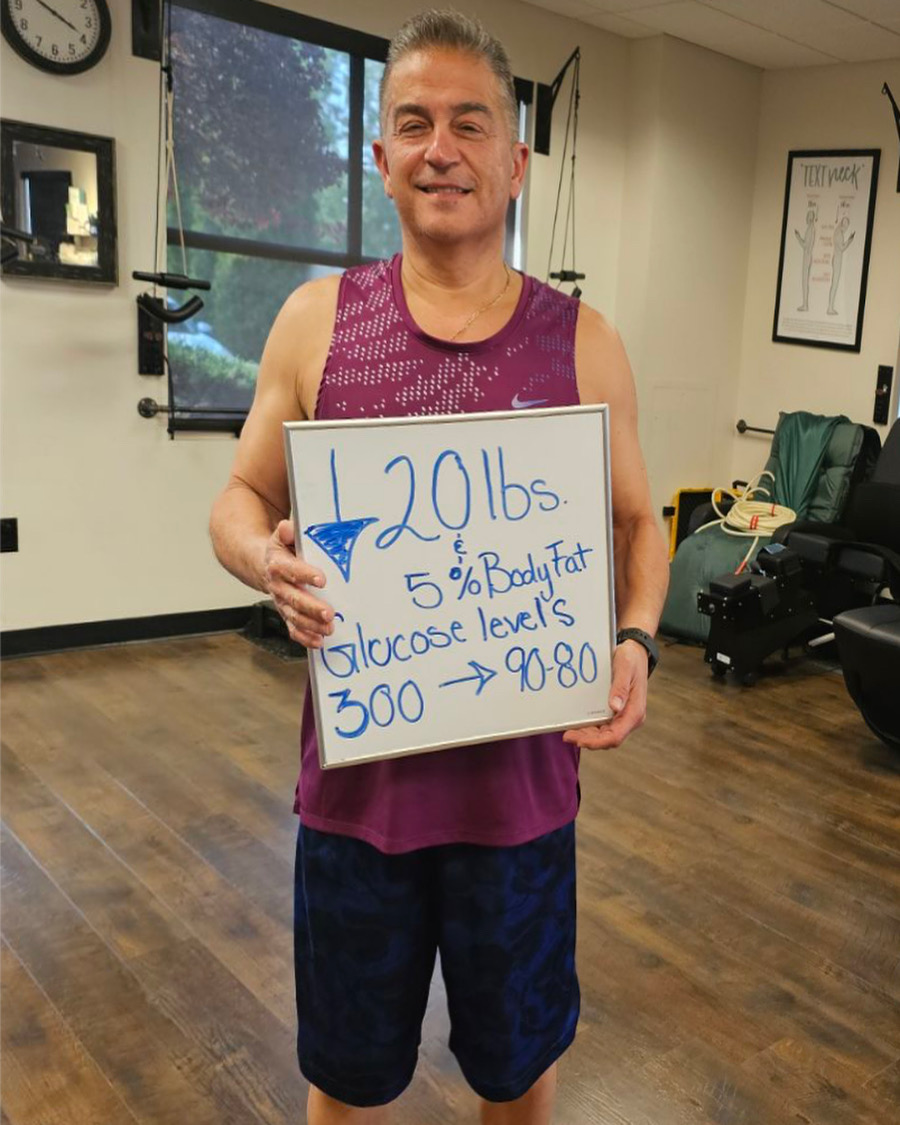 ↓ 20 lbs.
&
5 % Body Fat
Glucose level's
300 → 90-80
TEXT neck
2
3
4
5
6
7
8